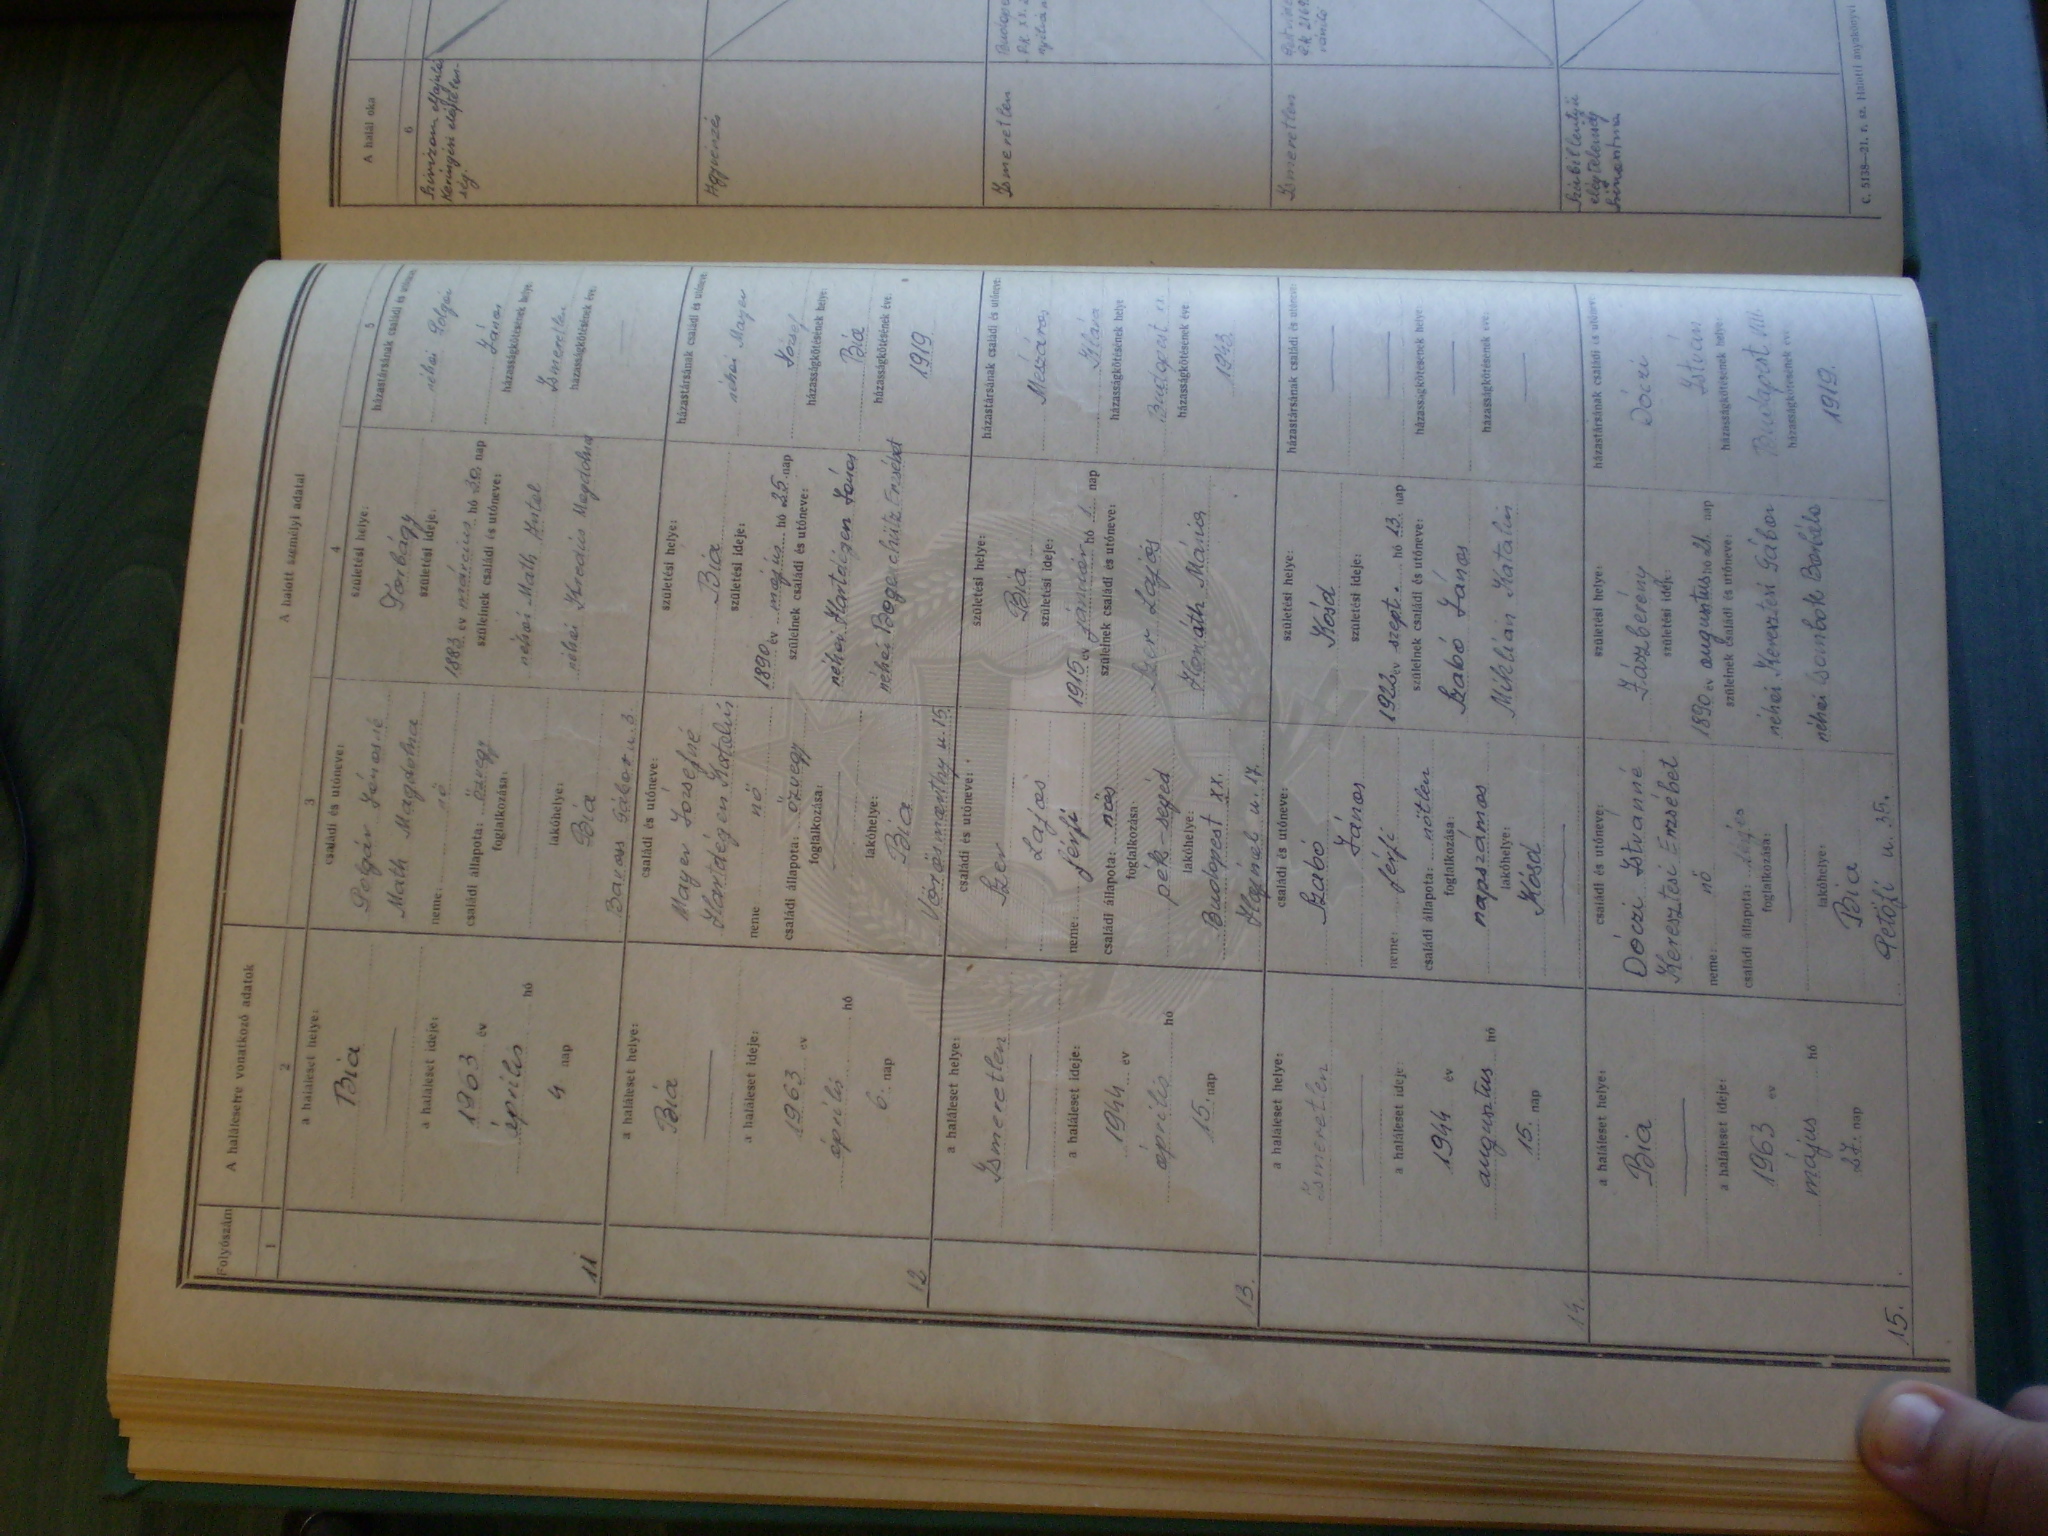 Folyószám
A halálesetre vonatkozó adatok
A halott személyi adatai
A halál oka
1
2
3
4
5
6
a haláleset helye:
Bia
a haláleset ideje:
1963 év
április hó
4 nap
családi és utóneve:
Polgár Jánosné
Math Magdolna
neme: nő
családi állapota: özvegy
foglalkozása:
lakóhelye:
Bia
Baross Gábor u. 3.
születési helye:
Torbágy
születési ideje:
1883 év március hó 30. nap
szüleinek családi és utóneve:
néhai Math Antal
néhai Magdolna
házastársának családi és utóneve:
néhai Polgár
János
házasságkötésének helye:
Ismeretlen
házasságkötésének éve:
Keringési elégtelen-
ség.
11
a haláleset helye:
Bia
a haláleset ideje:
1963 év
április hó
6. nap
családi és utóneve:
Mayer Józsefné
Hartdégen Katalin
neme nő
családi állapota: özvegy
foglalkozása:
lakóhelye:
Bia
Vörösmarthy u. 15.
születési helye:
Bia
születési ideje:
1890 év május hó 25. nap
szüleinek családi és utóneve:
néhai Hartdégen János
néhai Bogenschütz Erzsébet
házastársának családi és utóneve:
néhai Mayer
József
házasságkötésének helye:
Bia
házasságkötésének éve:
1919
Agyvérzés
12
a haláleset helye:
Ismeretlen
a haláleset ideje:
1944 év
április hó
15. nap
családi és utóneve:
Szer
Lajos
neme: férfi
családi állapota: nős
foglalkozása:
pék-segéd
lakóhelye:
Budapest XX.
u. 17.
születési helye:
Bia
születési ideje:
1915 év január hó 1. nap
szüleinek családi és utóneve:
Szer Lajos
Horváth Mária
házastársának családi és utóneve:
Mészáros
Klára
házasságkötésének helye
Budapest
házasságkötésének éve
1943
Ismeretlen
13.
a haláleset helye:
Ismeretlen
a haláleset ideje:
1944 év
augusztus hó
15. nap
családi és utóneve:
Szabó
János
neme: férfi
családi állapota: nőtlen
foglalkozása:
napszámos
lakóhelye:
Kósd
születési helye:
Kosd
születési ideje:
1922 év szept. hó 13. nap
szüleinek családi és utóneve:
Szabó János
Miklián Katalin
házastársának családi és utóneve:
házasságkötésének helye:
házasságkötésének éve:
Ismeretlen
14.
a haláleset helye:
Bia
a haláleset ideje:
1963 év
május hó
27. nap
családi és utóneve:
Dóczi Istvánné
Keresztesi Erzsébet
neme: nő
családi állapota:
foglalkozása:
lakóhelye:
Bia
Petőfi u. 35.
születési helye:
Jászberény
születési ideje:
1890 év augusztus hó 21. nap
szüleinek családi és utóneve:
néhai Keresztesi Gábor
néhai Csombok Borbála
házastársának családi és utóneve:
Dóczi
István
házasságkötésének helye:
Budapest VIII.
házasságkötésének éve:
1919.
Szívbillentyű
elégtelenség
15.
C. 5138—21. r. sz. Halotti anyakönyvi